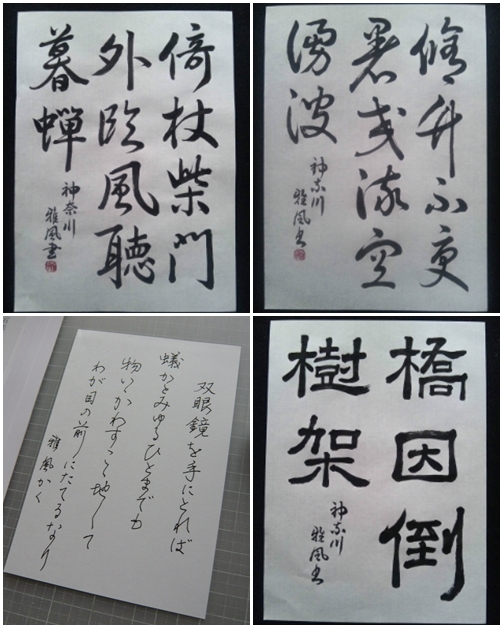 倚杖柴門
外臨風聽
暮蝉
神奈川
雅風書
不更
流空
湧波
神奈川
雅風書
双眼鏡を手にとれば
蟻かとみゆるひとまでも
物いひかわすこゝ地して
わが目の前にたてるなり
雅風かく
橋因倒
樹架
神奈川
雅風書